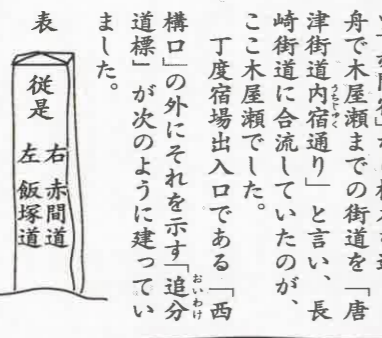 舟で木屋瀬までの街道を「唐
津街道内宿通り」と言い、長
崎街道に合流していたのが、
ここ木屋瀬でした。
丁度宿場出入口である「西
構口」の外にそれを示す「追分
道標」が次のように建ってい
ました。
表
従是
右 赤間道
左 飯塚道